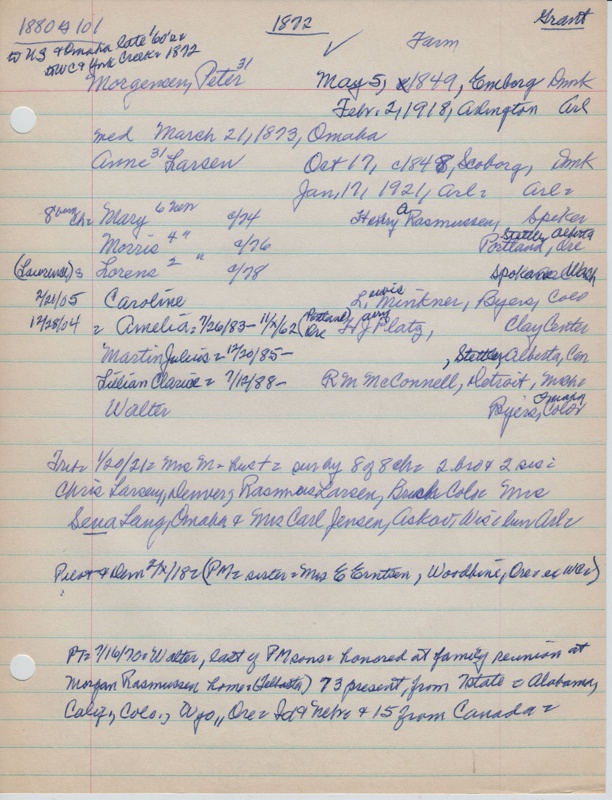 1880 101 1872 Grant
to US & Omaha late '60's &
to WC & York Creek = 1872 Farm
Morgensen, Peter 31 May 5, 1849, Emborg Dmk
Febr. 2, 1918, Arlington Arl
med March 21, 1873, Omaha
Anne 31 Larsen Oct 17, c1848, Scoborg, Dmk
Jan, 17, 1921, Arl = Arl =
8 Ch = Mary 6 Neb c/74 Henry A Rasmussen, Spiker
Morris 4 " c/76 Stettler Alberta Portland, Ore
(Laurense) = Lorens 2 " c/78 Spokane Wash
2/21/05 Caroline Lewis Minkner, Byers, Colo
12/28/04 = Amelia = 7/26/83 - 11/X/62 (Portland Ore) H J Platz, Clay Center
Martin Julius = 12/20/85 - , Stettler, Alberta, Can
Lillian Clarise = 7/12/88 - R M McConnell, Detroit, Mich =
Walter Omaha Byers, Color
Trib = 1/20/21 = Mrs M = hust = surv by 8 of 8 ch = 2 bro & 2 sis =
Chris Larsen, Denver, Rasmus Larsen, Brush Colo = Mrs
Sena Lang, Omaha & Mrs Carl Jensen, Askov, Wis = bur Arl =
Pilot & Dem 2/X/18 = (PM = sister = Mrs E Erntsen, Woodbine, Ore = ex WC =)
PT = 7/16/70 = Walter, last of PM sons = honored at family reunion at
Morgan Rasmussen home = (Telbasta) 73 present, from 7 state = Alabama,
Calif, Colo., Wyo,, Ore = Id & Nebr = & 15 from Canada =